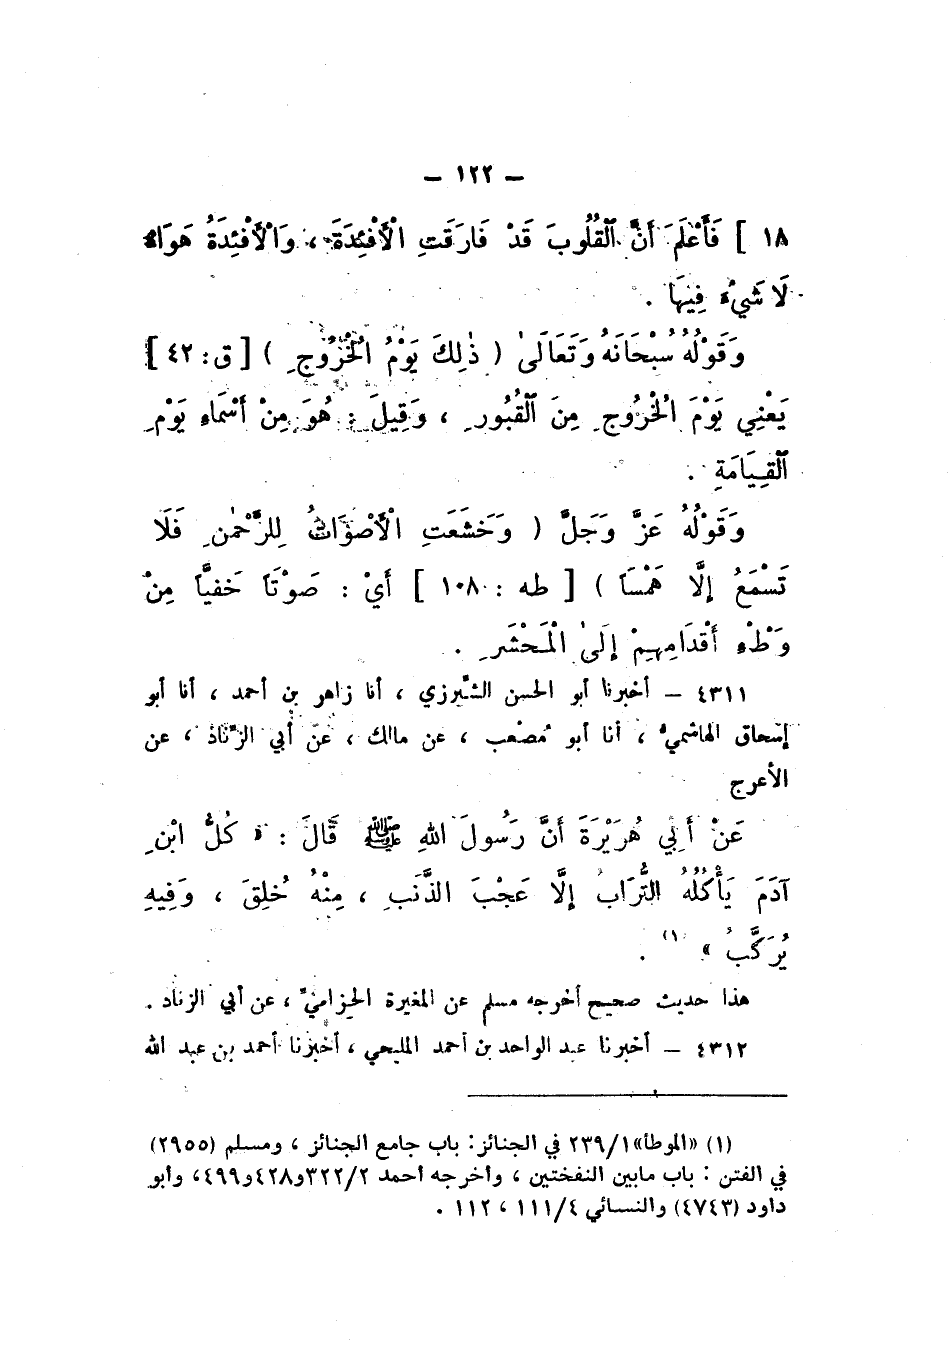 – ١٢٢ –
١٨ ] فَأَعْلَمَ أَنَّ القُلُوبَ قَدْ فَارَقَتِ الْأَفْئِدَةَ ، وَالْأَفْئِدَةُ هَوَاءٌ
لَا شَيْءَ فِيهَا .
وَقَوْلُهُ سُبْحَانَهُ وَتَعَالَىٰ ( ذٰلِكَ يَوْمُ الْخُرُوجِ ) [ ق : ٤٢ ]
يَعْنِي يَوْمَ الْخُرُوجِ مِنَ القُبُورِ ، وَقِيلَ : هُوَ مِنْ أَسْمَاءِ يَوْمِ
القِيَامَةِ .
وَقَوْلُهُ عَزَّ وَجَلَّ ( وَخَشَعَتِ الْأَصْوَاتُ لِلرَّحْمٰنِ فَلَا
تَسْمَعُ إِلَّا هَمْسَاً ) [ طه : ١٠٨ ] أَيْ : صَوْتَاً خَفِيَّاً مِنْ
وَطْءِ أَقْدَامِهِمْ إِلَىٰ الْمَحْشَرِ .
٤٣١١ – أخبرنا أبو الحسن الشّيرزي ، أنا زاهر بن أحمد ، أنا أبو
إسحاق الهاشميّ ، أنا أبو مُصْعب ، عن مالك ، عن أبي الزّناد ، عن
الأعرج
عَنْ أَبِي هُرَيْرَةَ أَنَّ رَسُولَ اللهِ ﷺ قَالَ : « كُلُّ ابْنِ
آدَمَ يَأْكُلُهُ التُّرَابُ إِلَّا عَجْبَ الذَّنَبِ ، مِنْهُ خُلِقَ ، وَفِيهِ
يُرَكَّبُ » (١) .
هذا حديث صحيح أخرجه مسلم عن المغيرة الحِزاميّ ، عن أبي الزناد .
٤٣١٢ – أخبرنا عبد الواحد بن أحمد المليحي ، أخبرنا أحمد بن عبد الله
(١) «الموطأ» ٢٣٩/١ في الجنائز: باب جامع الجنائز ، ومسلم (٢٩٥٥)
في الفتن : باب مابين النفختين ، وأخرجه أحمد ٣٢٢/٢و٤٢٨و٤٩٩، وأبو
داود (٤٧٤٣) والنسائي ١١١/٤ ، ١١٢ .